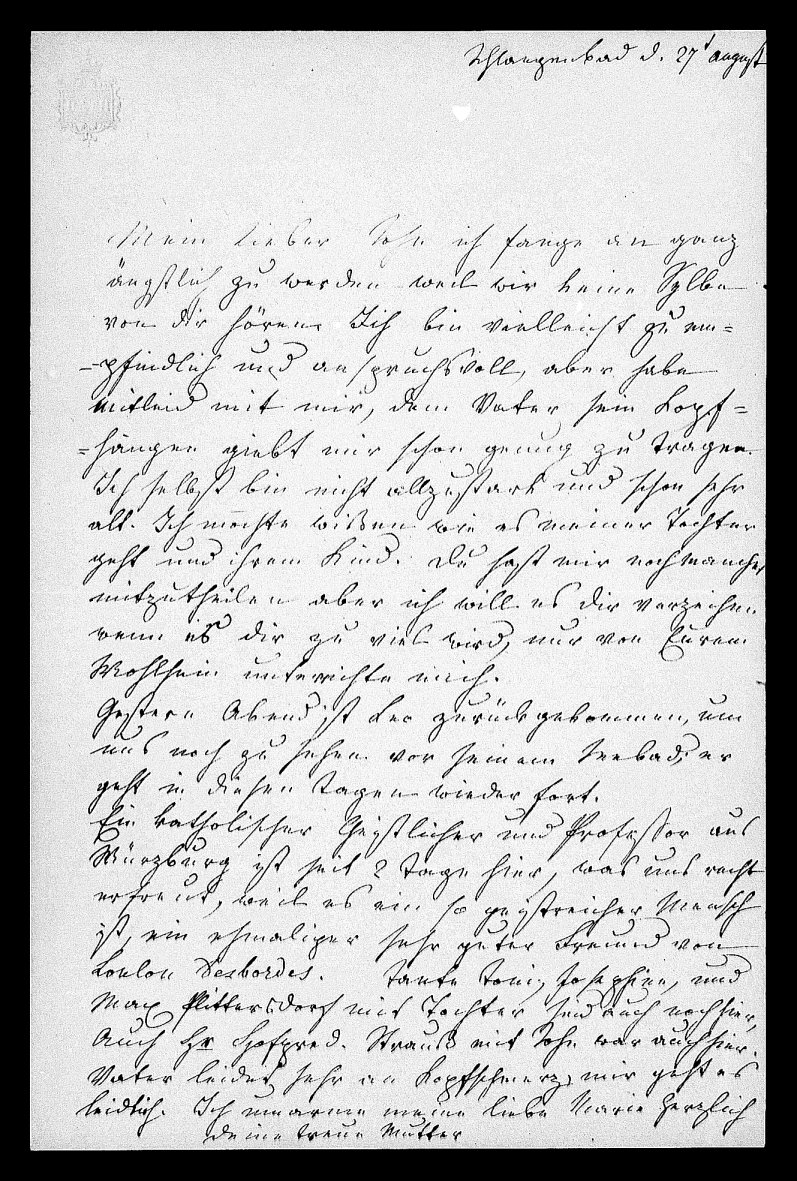 Schlangenbad d. 27t august
Mein lieber Sohn ich fange an ganz
ängstlich zu werden weil wir keine Sylbe
von dir hören. Ich bin vielleicht zu em=
=pfindlich und anspruchsvoll, aber habe
Mitleid mit mir, dem Vater sein Kopf=
=hängen giebt mir schon genug zu tragen.
Ich selbst bin nicht allzustark und schon sehr
alt. Ich mochte wissen wie es meiner Tochter
geht und ihrem Kind. Du hast mir noch manches
mitzutheilen aber ich will es dir verzeihen
wenn es dir zu viel wird, nur von Eurem
Wohlsein unterrichte mich.
Gestern Abend ist Leo zurückgekommen, um
uns noch zu sehen vor seinem Seebad; er
geht in diesen Tagen wieder fort.
Ein katholischer Geistlicher und Professor aus
Würzburg ist seit 2 Tage hier, was uns recht
erfreut, weil es ein so geistreicher Mensch
ist, ein ehmaliger sehr guter Freund von
Loulou Desbordes. Tante Toni, Josephine, und
Max Plittersdorf mit Tochter sind auch noch hier,
Auch Hr Hofpred. Strauß mit Sohn war auch hier.
Vater leidet sehr an Kopfschmerz, mir geht es
leidlich. Ich umarme meine liebe Marie herzlich
deine treue Mutter